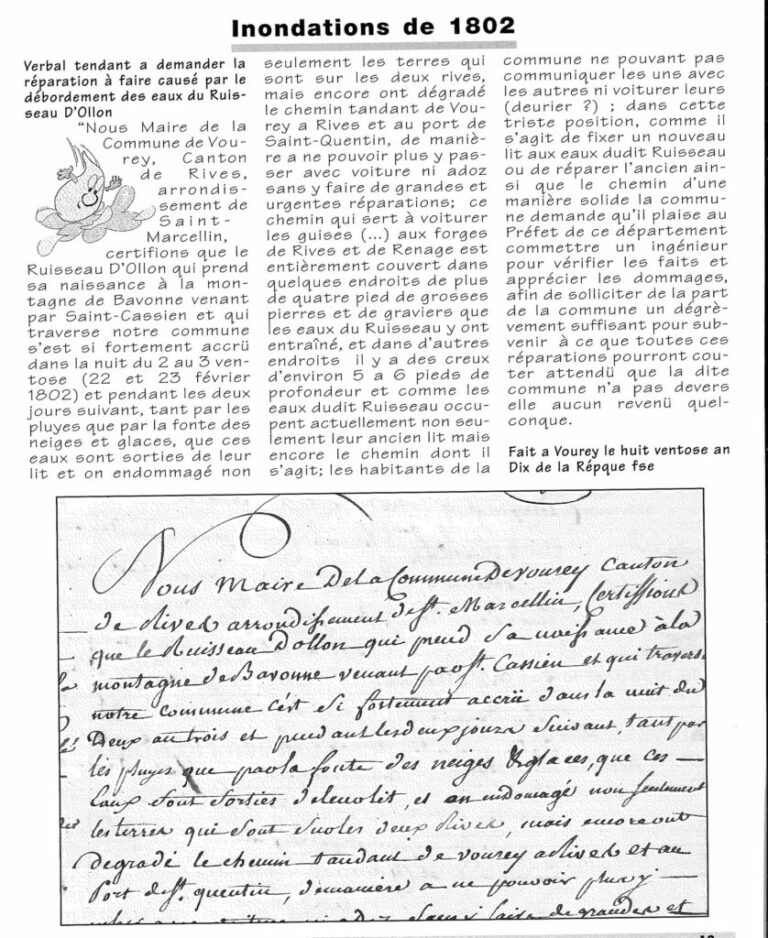 Inondations de 1802
Verbal tendant a demander la
réparation à faire causé par le
débordement des eaux du Ruis-
seau D'Ollon
"Nous Maire de la
Commune de Vou-
rey, Canton
de Rives,
arrondis-
sement de
Saint-
Marcellin,
certifions que le
Ruisseau D'Ollon qui prend
sa naissance à la mon-
tagne de Bavonne venant
par Saint-Cassien et qui
traverse notre commune
s'est si fortement accrü
dans la nuit du 2 au 3 ven-
tose (22 et 23 février
1802) et pendant les deux
jours suivant, tant par les
pluyes que par la fonte des
neiges et glaces, que ces
eaux sont sorties de leur
lit et on endommagé non
seulement les terres qui
sont sur les deux rives,
mais encore ont dégradé
le chemin tandant de Vou-
rey a Rives et au port de
Saint-Quentin, de maniè-
re a ne pouvoir plus y pas-
ser avec voiture ni adoz
sans y faire de grandes et
urgentes réparations; ce
chemin qui sert à voiturer
les guises (...) aux forges
de Rives et de Renage est
entièrement couvert dans
quelques endroits de plus
de quatre pied de grosses
pierres et de graviers que
les eaux du Ruisseau y ont
entraîné, et dans d'autres
endroits il y a des creux
d'environ 5 a 6 pieds de
profondeur et comme les
eaux dudit Ruisseau occu-
pent actuellement non seu-
lement leur ancien lit mais
encore le chemin dont il
s'agit; les habitants de la
commune ne pouvant pas
communiquer les uns avec
les autres ni voiturer leurs
(deurier ?) ; dans cette
triste position, comme il
s'agit de fixer un nouveau
lit aux eaux dudit Ruisseau
ou de réparer l'ancien ain-
si que le chemin d'une
manière solide la commu-
ne demande qu'il plaise au
Préfet de ce département
commettre un ingénieur
pour vérifier les faits et
apprécier les dommages,
afin de solliciter de la part
de la commune un dégrè-
vement suffisant pour sub-
venir à ce que toutes ces
réparations pourront cou-
ter attendü que la dite
commune n'a pas devers
elle aucun revenü quel-
conque.
Fait a Vourey le huit ventose an
Dix de la Répque fse
Nous Maire De la Commune De vourey Canton
de Rives arrondissement de St. Marcellin, Certiffions
que le Ruisseau Dollon qui prend sa naissance à la
montagne de Bavonne venant par St. Cassien et qui travers.
notre commune c'est si fortement accrü dans la nuit du
Deux au trois et pendant les deux jours suivant, tant par
les pluyes que par la fonte des neiges & glaces, que ces
Eaux sont sorties de leur lit, et on endomagé non seulement
les terres qui sont sur les deux Rives, mais encore ont
Degradé le chemin tandant de vourey a Rives et au
Port de St. quentin, de maniere a ne pouvoir plus y
sans i faire de grandes et